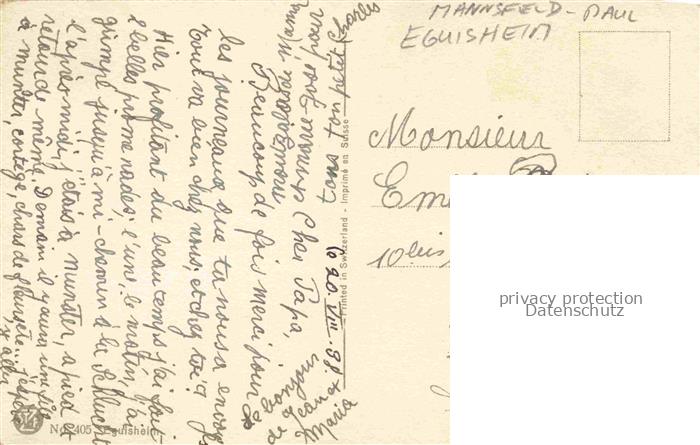 MANNSFELD - PAUL
EGUISHEIM
Monsieur
10 bis
privacy protection
Datenschutz
Printed in Switzerland - Imprimé en Suisse
20. VIII. 38
Cher Papa,
Beaucoup de fois merci pour
les journeaux que tu nous a envoyés
Tout va bien chez nous, et chez toi?
Hier profitant du beau temps j'ai fait
2 belles promenades; l'une, le matin, j'ai
grimpé jusqu'à mi-chemin à la Schlucht
l'après-midi, j'étais à Munster, à pied et
retour de même. Demain il y aura une fête
à Munster, cortège, chars de fleurs, etc...
y aller
Ton tout petit Charles
Bonjour
de Jean et
Maria
No. 2405 Eguisheim